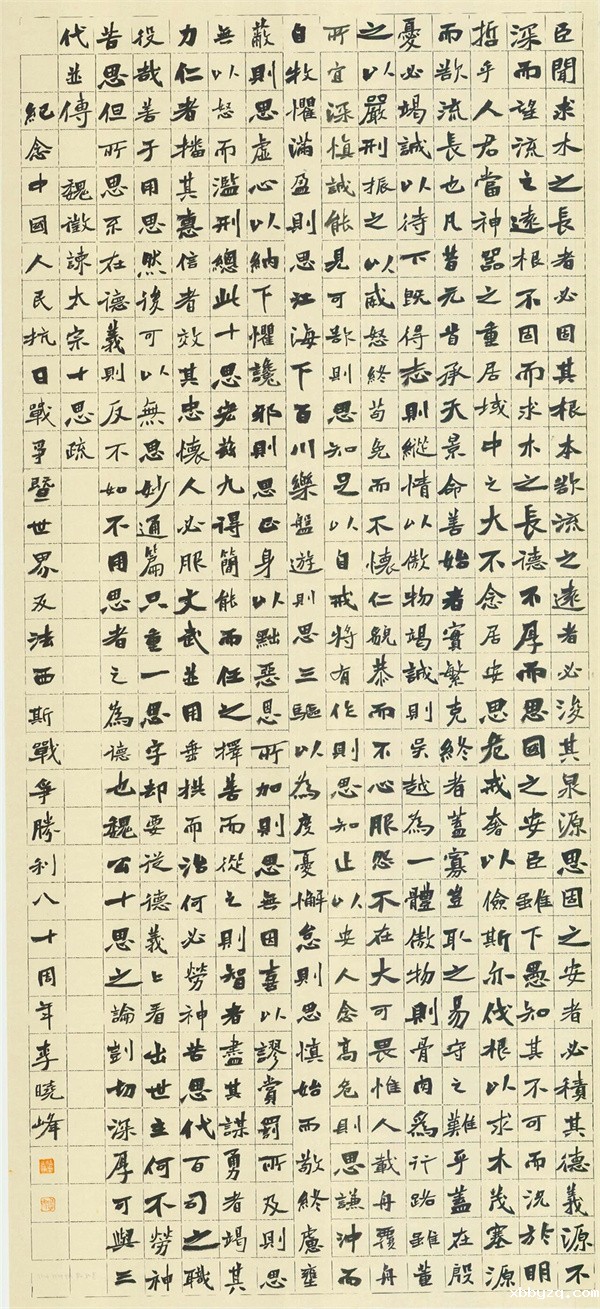 臣聞求木之長者必固其根本欲流之遠者必浚其泉源思國之安者必積其德義源不
深而望流之遠根不固而求木之長德不厚而思國之安臣雖下愚知其不可而況於明
哲乎人君當神器之重居域中之大不念居安思危戒奢以儉斯亦伐根以求木茂塞源
而欲流長也凡昔元首承天景命善始者實繁克終者蓋寡豈取之易守之難乎蓋在殷
憂必竭誠以待下既得志則縱情以傲物竭誠則吳越為一體傲物則骨肉為行路雖董
之以嚴刑振之以威怒終苟免而不懷仁貌恭而不心服怨不在大可畏惟人載舟覆舟
所宜深慎誠能見可欲則思知足以自戒將有作則思知止以安人念高危則思謙沖而
自牧懼滿盈則思江海下百川樂盤遊則思三驅以為度憂懈怠則思慎始而敬終慮壅
蔽則思虛心以納下懼讒邪則思正身以黜惡恩所加則思無因喜以謬賞罰所及則思
無以怒而濫刑總此十思宏茲九得簡能而任之擇善而從之則智者盡其謀勇者竭其
力仁者播其惠信者效其忠懷人必服文武並用垂拱而治何必勞神苦思代百司之職
役哉善于用思然後可以無思妙通篇只重一思字却要從德義上看出世主何不勞神
苦思但所思不在德義則反不如不用思者之為德也魏公十思之論剴切深厚可與三
代並傳 魏徵諫太宗十思疏
紀念中國人民抗日戰爭暨世界反法西斯戰爭勝利八十周年李曉峰
xbbyzq.com